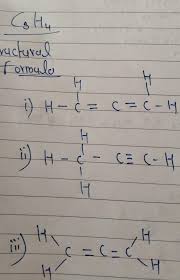 C3H4
ructural
Formula
H H
i) H-C=C=C-H
H
ii) H-C-C≡C-H
H
iii) H H
C=C=C
H H